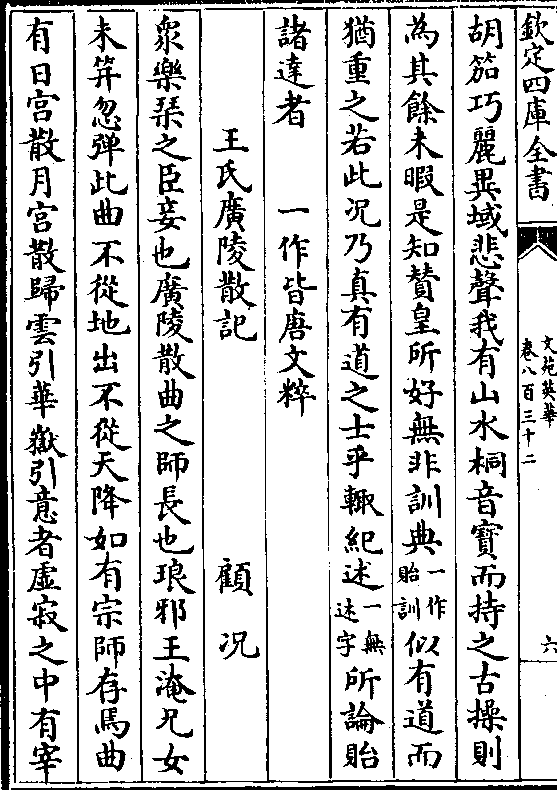 欽定四庫全書
文苑英華
卷八百三十二
六
胡笳巧麗異域悲聲我有山水桐音寳而持之古操則
為其餘未暇是知賛皇所好無非訓典一作貽訓似有道而
猶重之若此况乃真有道之士乎輙紀述一無述字所論貽
諸達者　一作皆唐文粹
王氏廣陵散記　顧况
衆樂琴之臣妾也廣陵散曲之師長也琅邪王淹兄女
未笄忽彈此曲不從地出不從天降如有宗師存焉曲
有日宫散月宫散歸雲引華嶽引意者虚寂之中有宰